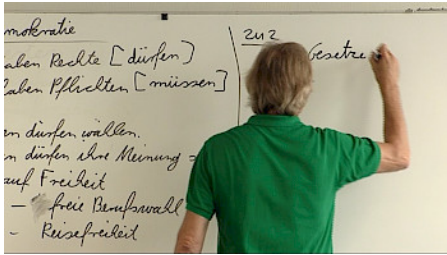 mokratie
aben Rechte [dürfen]
aben Pflichten [müssen]
en dürfen wählen.
n dürfen ihre Meinung =
auf Freiheit
– freie Berufswahl
– Reisefreiheit
2u2
Gesetze